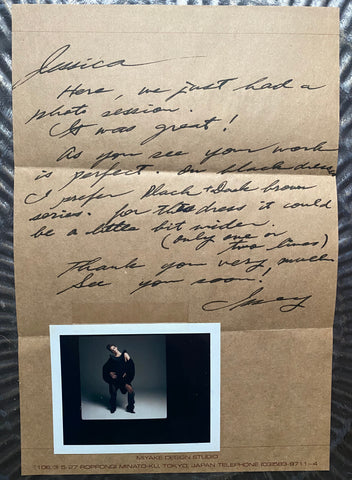 Jessica
Here, we just had a
photo session.
It was great!
As you see your work
is perfect. On black dress
I prefer Black + Dark brown
series. for this dress it could
be a little bit wider.
(only one or
two lines)
Thank you very much
See you soon!
Issey
MIYAKE DESIGN STUDIO
106, 3-5-27 ROPPONGI MINATO-KU, TOKYO, JAPAN TELEPHONE (03)583-9711~4